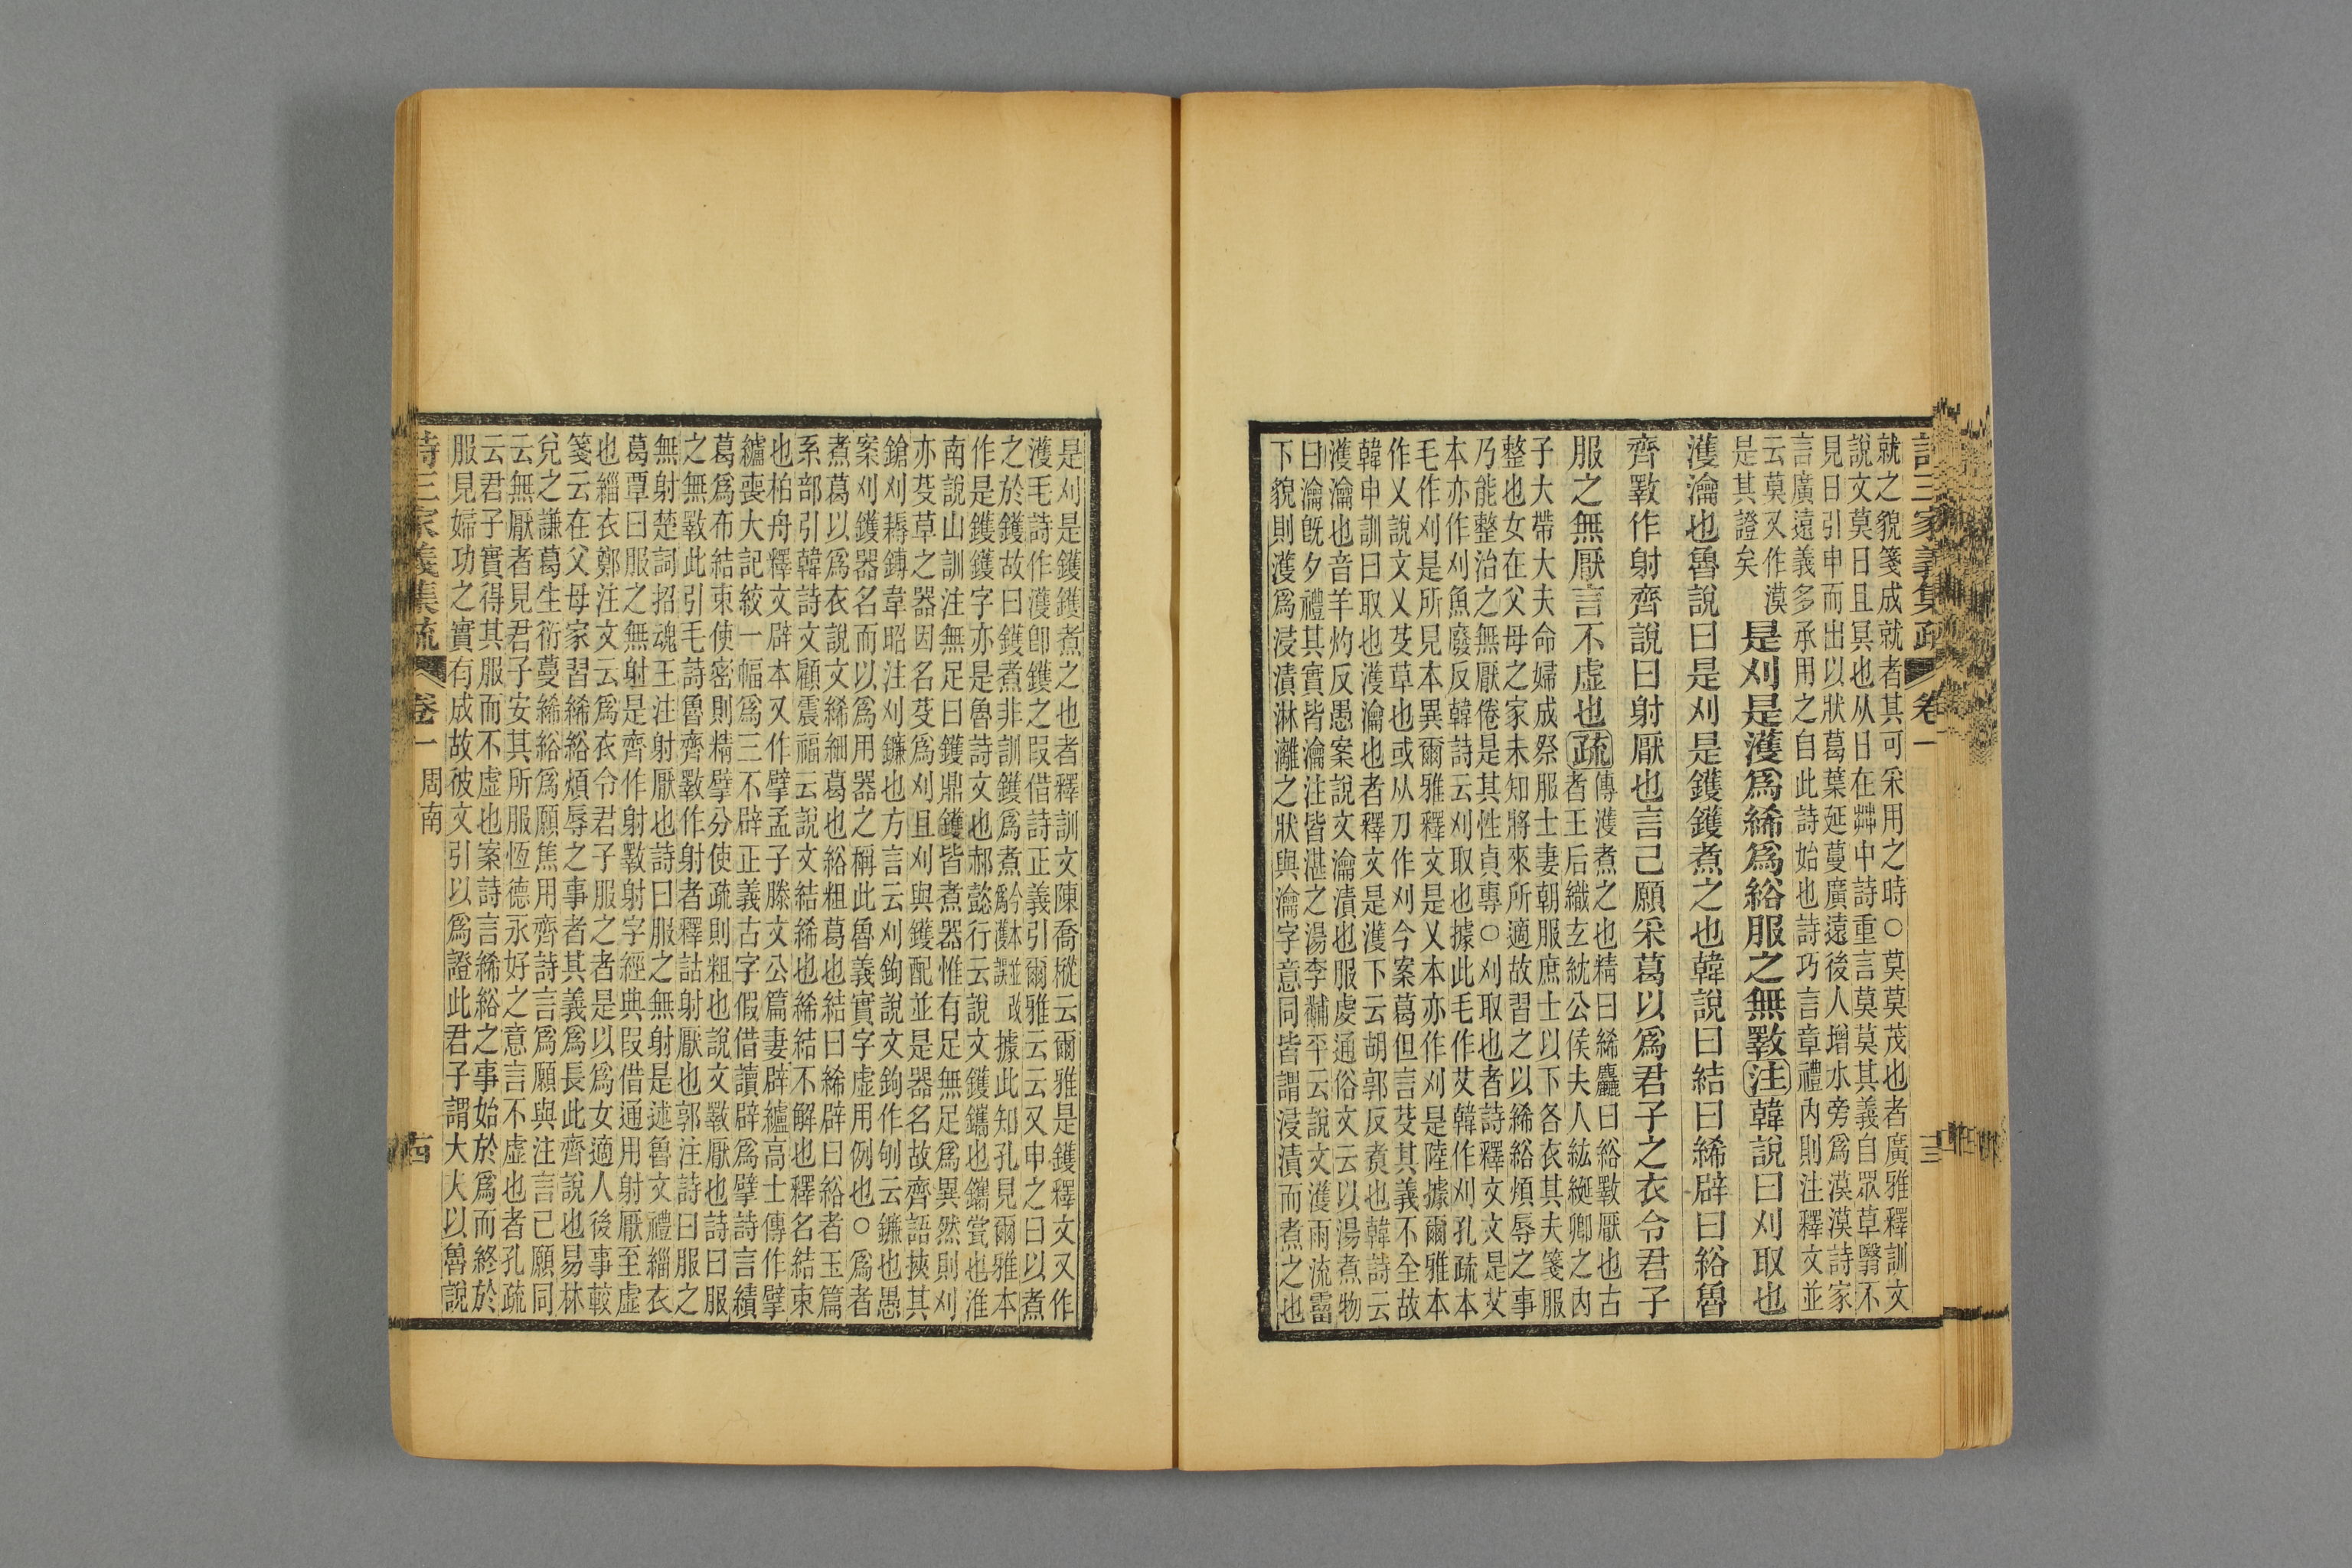 詩三家義集疏 卷一 三
就之貌箋成就者其可采用之時○莫莫茂也者廣雅釋訓文
說文莫日且冥也从日在茻中詩重言莫莫其義自眾草翳不
見日引申而出以狀葛葉延蔓廣遠後人增水旁爲漠漠詩家
言廣遠義多承用之自此詩始也詩巧言章禮內則注釋文並
云莫又作漠
是其證矣
是刈是濩爲絺爲綌服之無斁注韓說曰刈取也
濩瀹也魯說曰是刈是鑊鑊煮之也韓說曰結曰絺辟曰綌魯
齊斁作射齊說曰射厭也言己願采葛以爲君子之衣令君子
服之無厭言不虛也疏
傳濩煮之也精曰絺麤曰綌斁厭也古
者王后織玄紞公侯夫人紘綖卿之內
子大帶大夫命婦成祭服士妻朝服庶士以下各衣其夫箋服
整也女在父母之家未知將來所適故習之以絺綌煩辱之事
乃能整治之無厭倦是其性貞專○刈取也者詩釋文文是艾
本亦作刈魚廢反韓詩云刈取也據此毛作艾韓作刈孔疏本
毛作刈是所見本異爾雅釋文是又本亦作刈是陸據爾雅本
作乂說文乂芟草也或从刀作刈今案葛但言芟其義不全故
韓申訓曰取也濩瀹也者釋文是濩下云胡郭反煑也韓詩云
濩瀹也音羊灼反愚案說文瀹漬也服虔通俗文云以湯煮物
曰瀹旣夕禮其實皆瀹注皆湛之湯李黼平云說文濩雨流霤
下貌則濩爲浸漬淋灕之狀與瀹字意同皆謂浸漬而煮之也
是刈是鑊鑊煮之也者釋訓文陳喬樅云爾雅是鑊釋文又作
濩毛詩作濩卽鑊之叚借詩正義引爾雅云云又申之曰以煮
之於鑊故曰鑊煮非訓鑊爲煮今本並改爲濩誤據此知孔見爾雅本
作是鑊鑊字亦是魯詩文也郝懿行云說文鑊鑴也鑴瓽也淮
南說山訓注無足曰鑊鼎鑊皆煮器惟有足無足爲異然則刈
亦芟草之器因名芟爲刈且刈與鑊配並是器名故齊語挾其
鎗刈耨鎛韋昭注刈鐮也方言云刈鉤說文鉤作刨云鐮也愚
案刈鑊器名而以爲用器之稱此魯義實字虛用例也○爲者
煮葛以爲衣說文絺細葛也綌粗葛也結曰絺辟曰綌者玉篇
系部引韓詩文顧震福云說文結締也絺結不解也釋名結束
也柏舟釋文辟本又作擘孟子滕文公篇妻辟纑高士傳作擘
纑喪大記絞一幅爲三不辟正義古字假借讀辟爲擘詩言績
葛爲布結束使密則精擘分使疏則粗也說文斁厭也詩曰服
之無斁此引毛詩魯齊斁作射者釋詁射厭也郭注詩曰服之
無射楚詞招魂王注射厭也詩曰服之無射是述魯文禮緇衣
葛覃曰服之無射是齊作射斁射字經典叚借通用射厭至虛
也緇衣鄭注文云爲衣令君子服之者是以爲女適人後事較
箋云在父母家習絺綌煩辱之事者其義爲長此齊說也易林
兌之謙葛生衍蔓絺綌爲願焦用齊詩言爲願與注言己願同
云無厭者見君子安其所服恆德永好之意言不虛也者孔疏
云君子實得其服而不虛也案詩言絺綌之事始於爲而終於
服見婦功之實有成故彼文引以爲證此君子謂大夫以魯說
詩三家義集疏 卷一 周南 十四